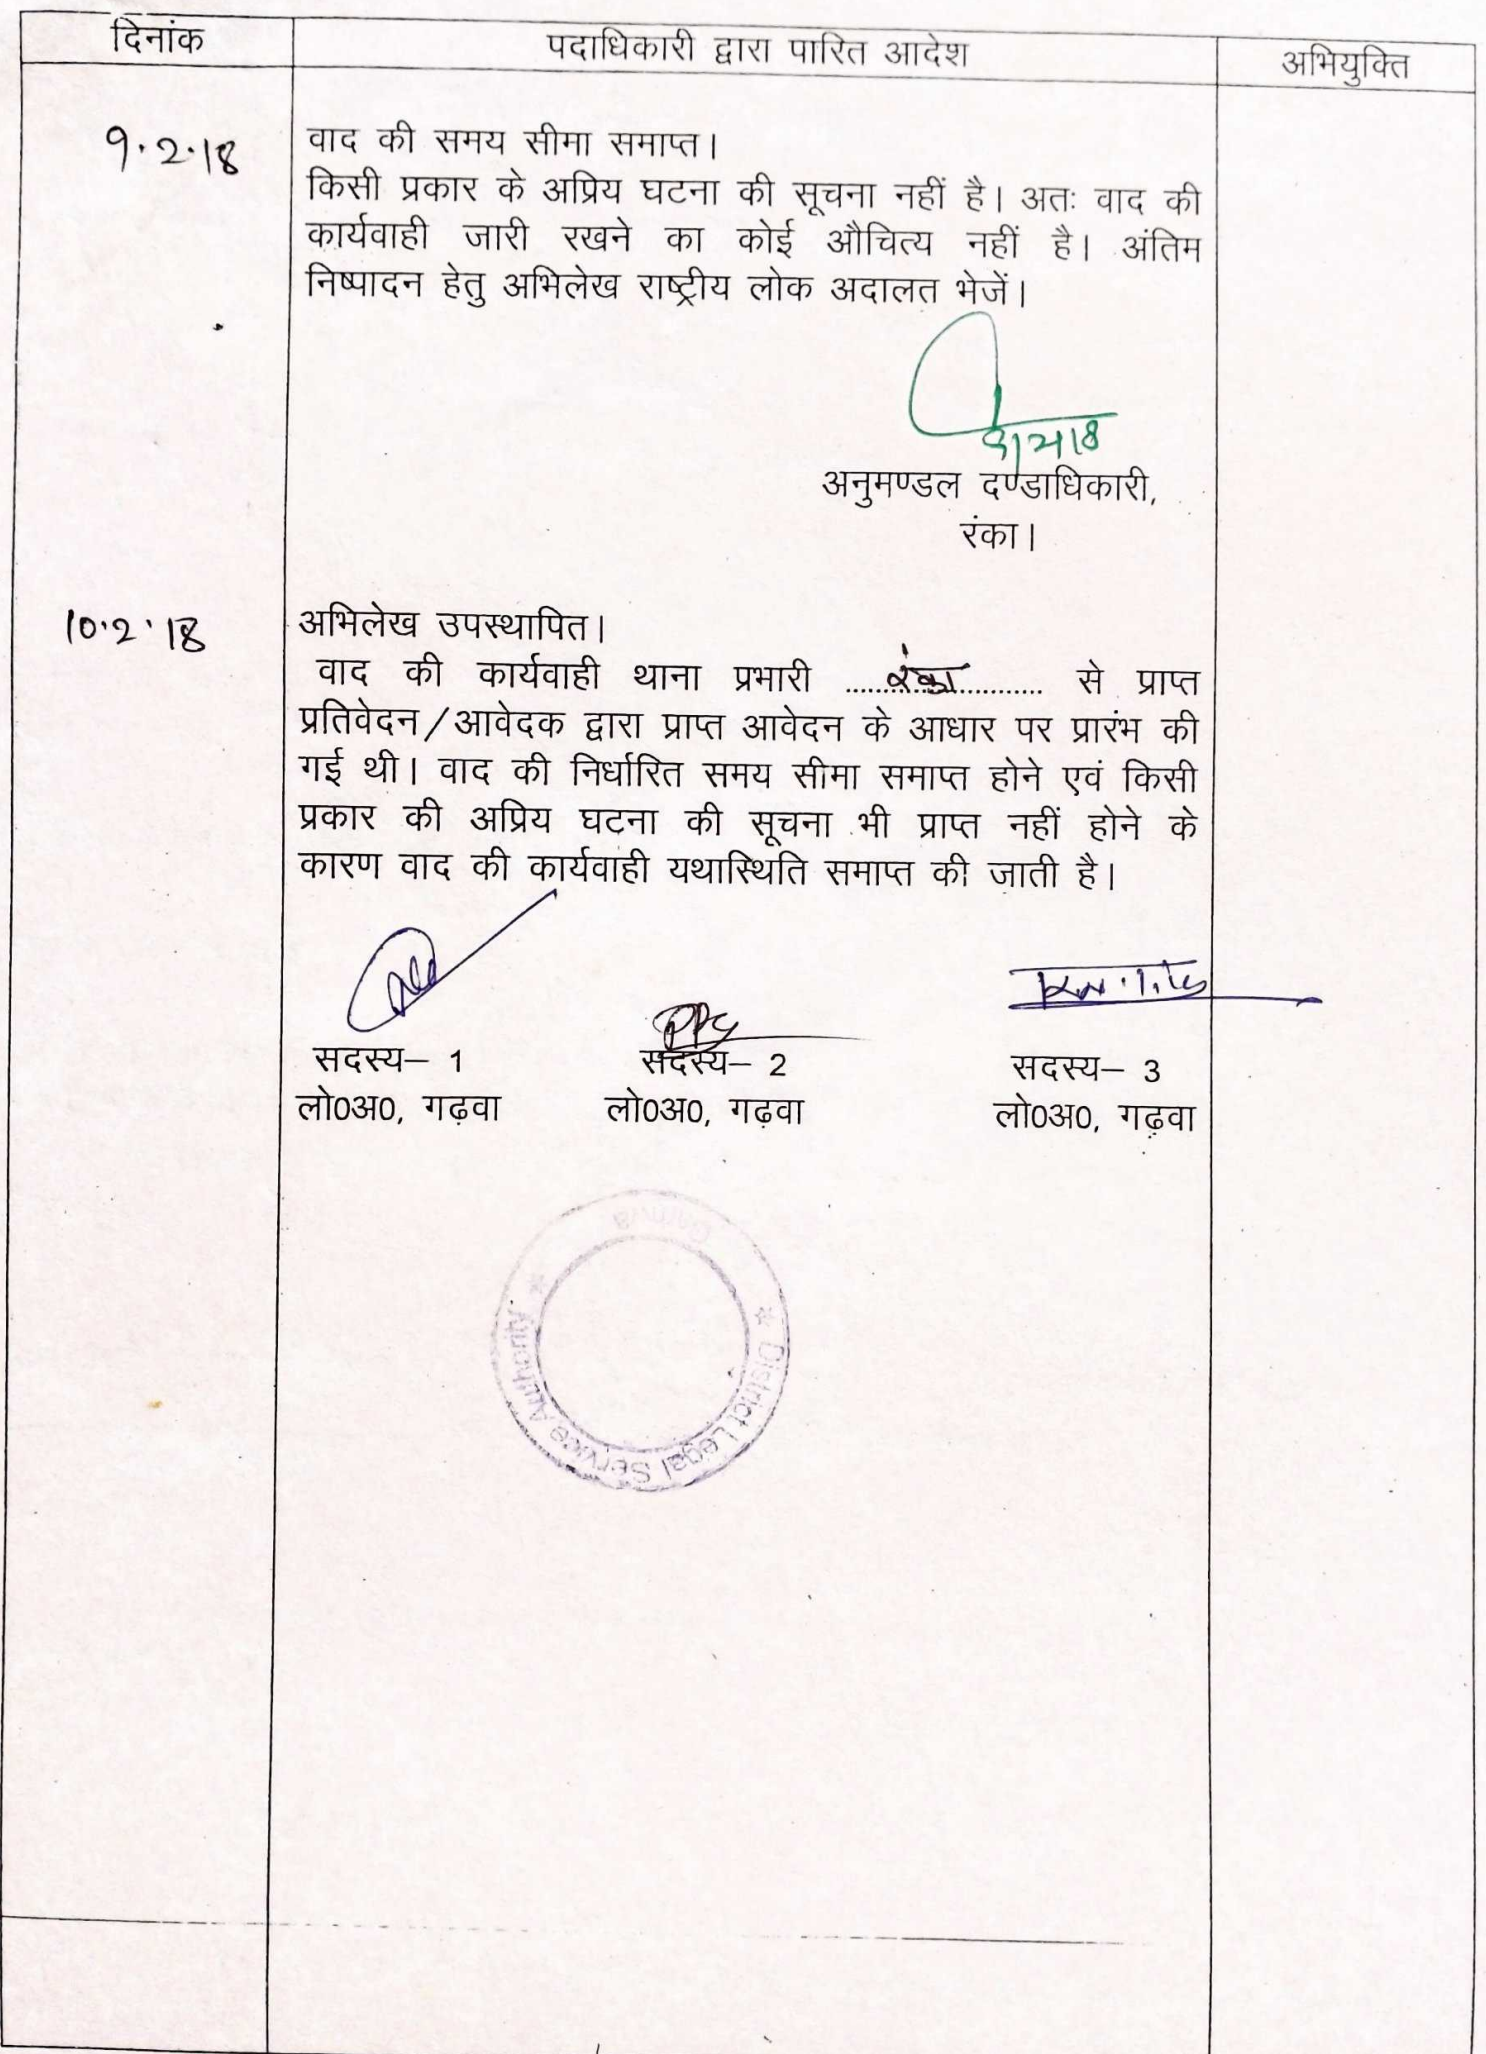 दिनांक पदाधिकारी द्वारा पारित आदेश अभियुक्ति
9.2.18 वाद की समय सीमा समाप्त।
किसी प्रकार के अप्रिय घटना की सूचना नहीं है। अतः वाद की
कार्यवाही जारी रखने का कोई औचित्य नहीं है। अंतिम
निष्पादन हेतु अभिलेख राष्ट्रीय लोक अदालत भेजें।
अनुमण्डल दण्डाधिकारी,
रंका।
10.2.18 अभिलेख उपस्थापित।
वाद की कार्यवाही थाना प्रभारी ....रंका.... से प्राप्त
प्रतिवेदन/आवेदक द्वारा प्राप्त आवेदन के आधार पर प्रारंभ की
गई थी। वाद की निर्धारित समय सीमा समाप्त होने एवं किसी
प्रकार की अप्रिय घटना की सूचना भी प्राप्त नहीं होने के
कारण वाद की कार्यवाही यथास्थिति समाप्त की जाती है।
सदस्य– 1 सदस्य– 2 सदस्य– 3
लो0अ0, गढ़वा लो0अ0, गढ़वा लो0अ0, गढ़वा
Garhwa
* District Legal Service Authority *